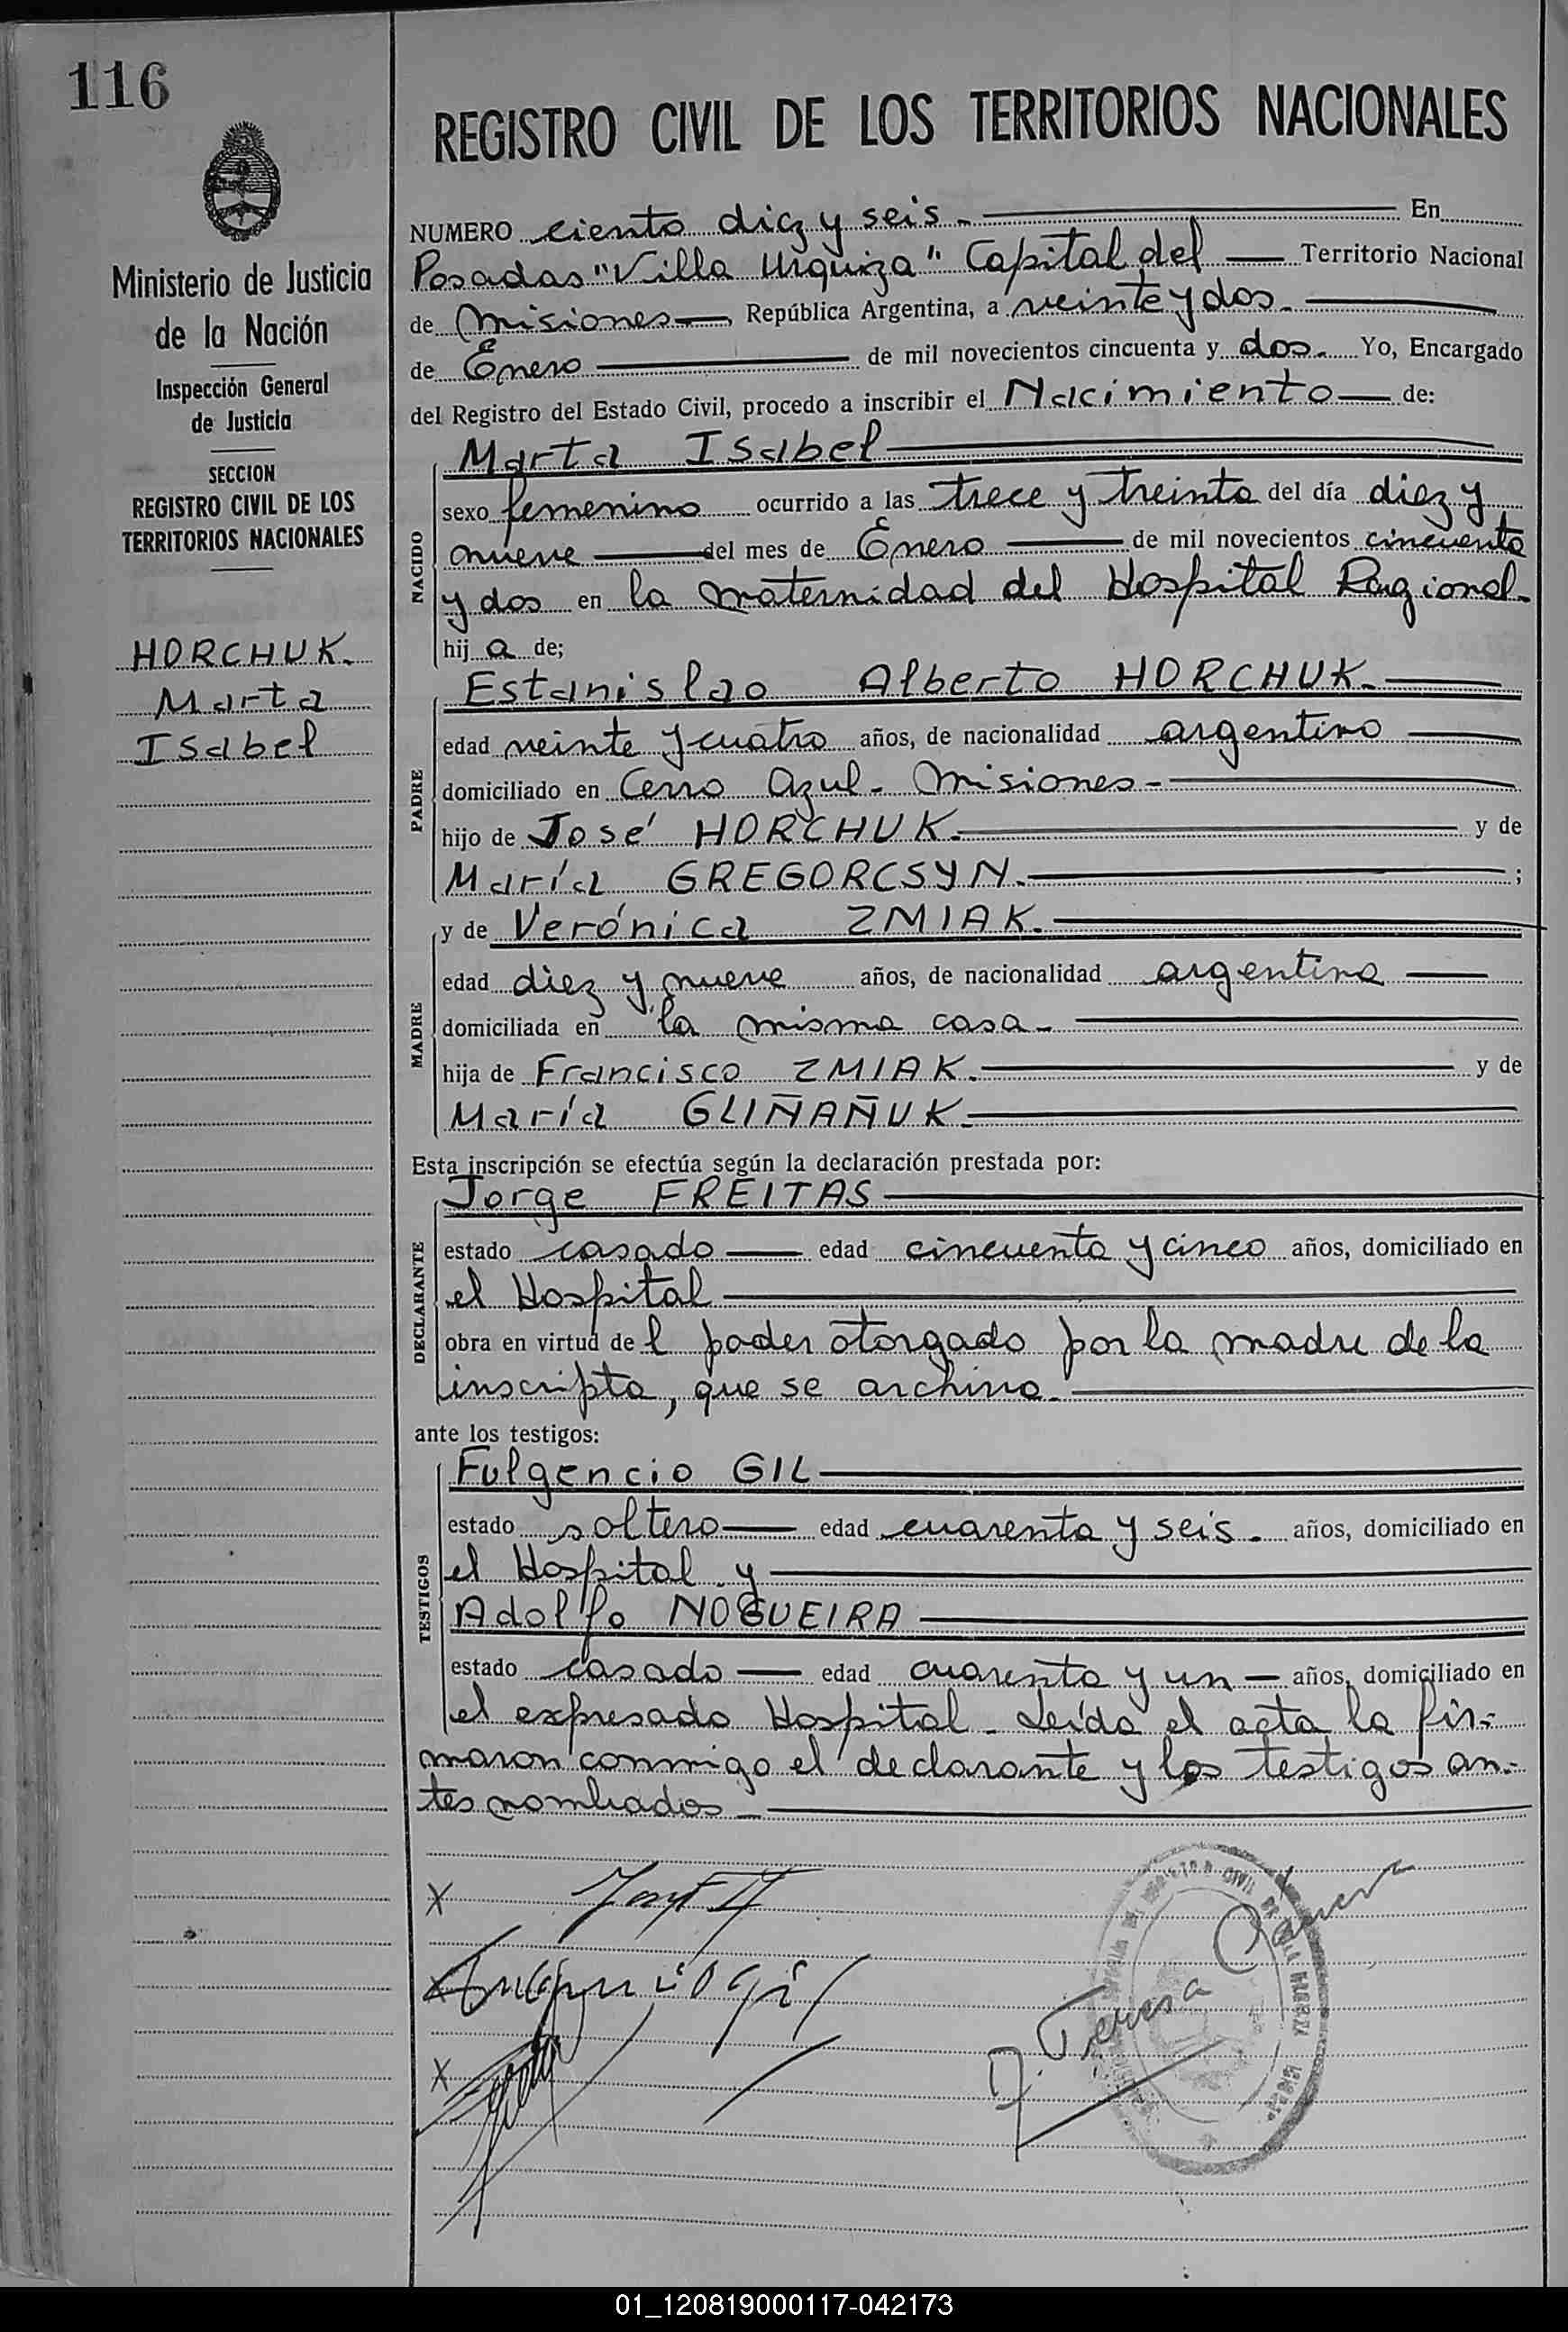 116
REGISTRO CIVIL DE LOS TERRITORIOS NACIONALES
Ministerio de Justicia
de la Nación
Inspección General
de Justicia
SECCION
REGISTRO CIVIL DE LOS
TERRITORIOS NACIONALES
HORCHUK.
Marta
Isabel
NUMERO ciento diez y seis.- En
Posadas "Villa Urquiza" Capital del — Territorio Nacional
de Misiones—, República Argentina, a veinte y dos.
de Enero — de mil novecientos cincuenta y dos. Yo, Encargado
del Registro del Estado Civil, procedo a inscribir el Nacimiento — de:
Marta Isabel
NACIDO
sexo femenino ocurrido a las trece y treinta del día diez y
nueve — del mes de Enero — de mil novecientos cincuenta
y dos en la maternidad del Hospital Regional.
hij a de;
Estanislao Alberto HORCHUK.
PADRE
edad veinte y cuatro años, de nacionalidad argentino
domiciliado en Cerro Azul - Misiones-
hijo de José HORCHUK. y de
María GREGORCSYN. ;
y de Verónica ZMIAK.
MADRE
edad diez y nueve años, de nacionalidad argentina
domiciliada en la misma casa-
hija de Francisco ZMIAK. y de
María GLIÑAÑUK-
Esta inscripción se efectúa según la declaración prestada por:
Jorge FREITAS
DECLARANTE
estado casado — edad cincuenta y cinco años, domiciliado en
el Hospital
obra en virtud de l poder otorgado por la madre de la
inscripta, que se archiva.
ante los testigos:
Fulgencio GIL
TESTIGOS
estado soltero — edad cuarenta y seis. años, domiciliado en
el Hospital y
Adolfo NOGUEIRA
estado casado — edad cuarenta y un — años, domiciliado en
el expresado Hospital. Leída el acta la fir-
maron conmigo el declarante y los testigos an-
tes nombrados
X
X
Teresa
01_120819000117-042173